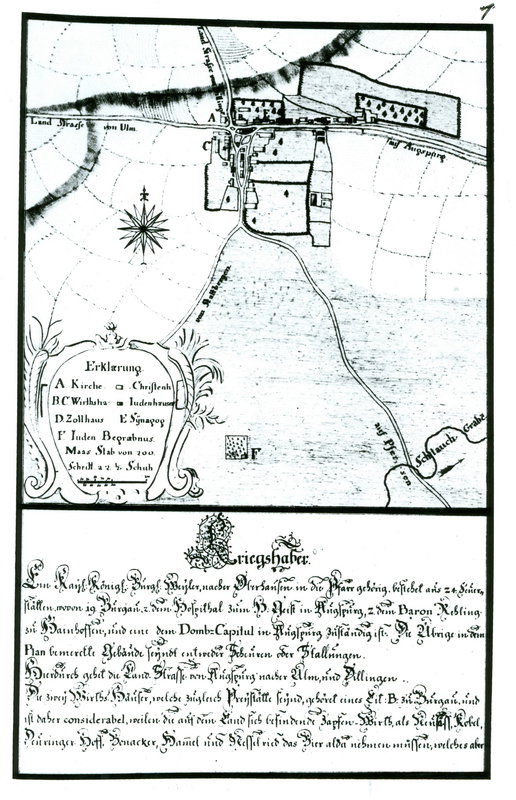 7
Land Strasse von Ulm
A
C
auf Augspurg
von Stattbergen
auf Pfersen
Schlauch Grabe
F
Erklærung
A Kirche. Christenh
B.C Wirthshä: Iudenhæuser
D. Zollhaus E Sÿnagog
F Iuden Begræbnus.
Maas Stab von 200.
Schritt a 2 ½ Schuh
Kriegshaber.
Ein Kaÿl. Königl. Burg. Weÿler, nacher Oberhausen in die Pfarr gehörig, bestehet aus 24. Feuer-
ställen, wovon 19. Burgau, 2. dem Hospithal zum H. Geist in Augspurg, 2. dem Baron Rehling
zu Hainhoffen, und eine dem Domb-Capitul in Augspurg zuständig ist. Die Übrige in dem
Plan bemerckte Gebäude seÿndt entweder Scheuren oder Stallungen.
Hierdurch gehet die Land Strasse von Augspurg nacher Ulm, und Dillingen.
Die zweÿ Wirths Häuser, welche zugleich Preÿställe seÿnd, gehöret eines Lit: B: zu Burgau, und
ist daher considerabel, weilen die auf dem Land sich befindende Zapfen Wirth, als Neusäss, Kobel,
Deuringer Hoff, Bonacker, Ham̄el und Nessel ried das Bier alda nehmen müssen, welches aber